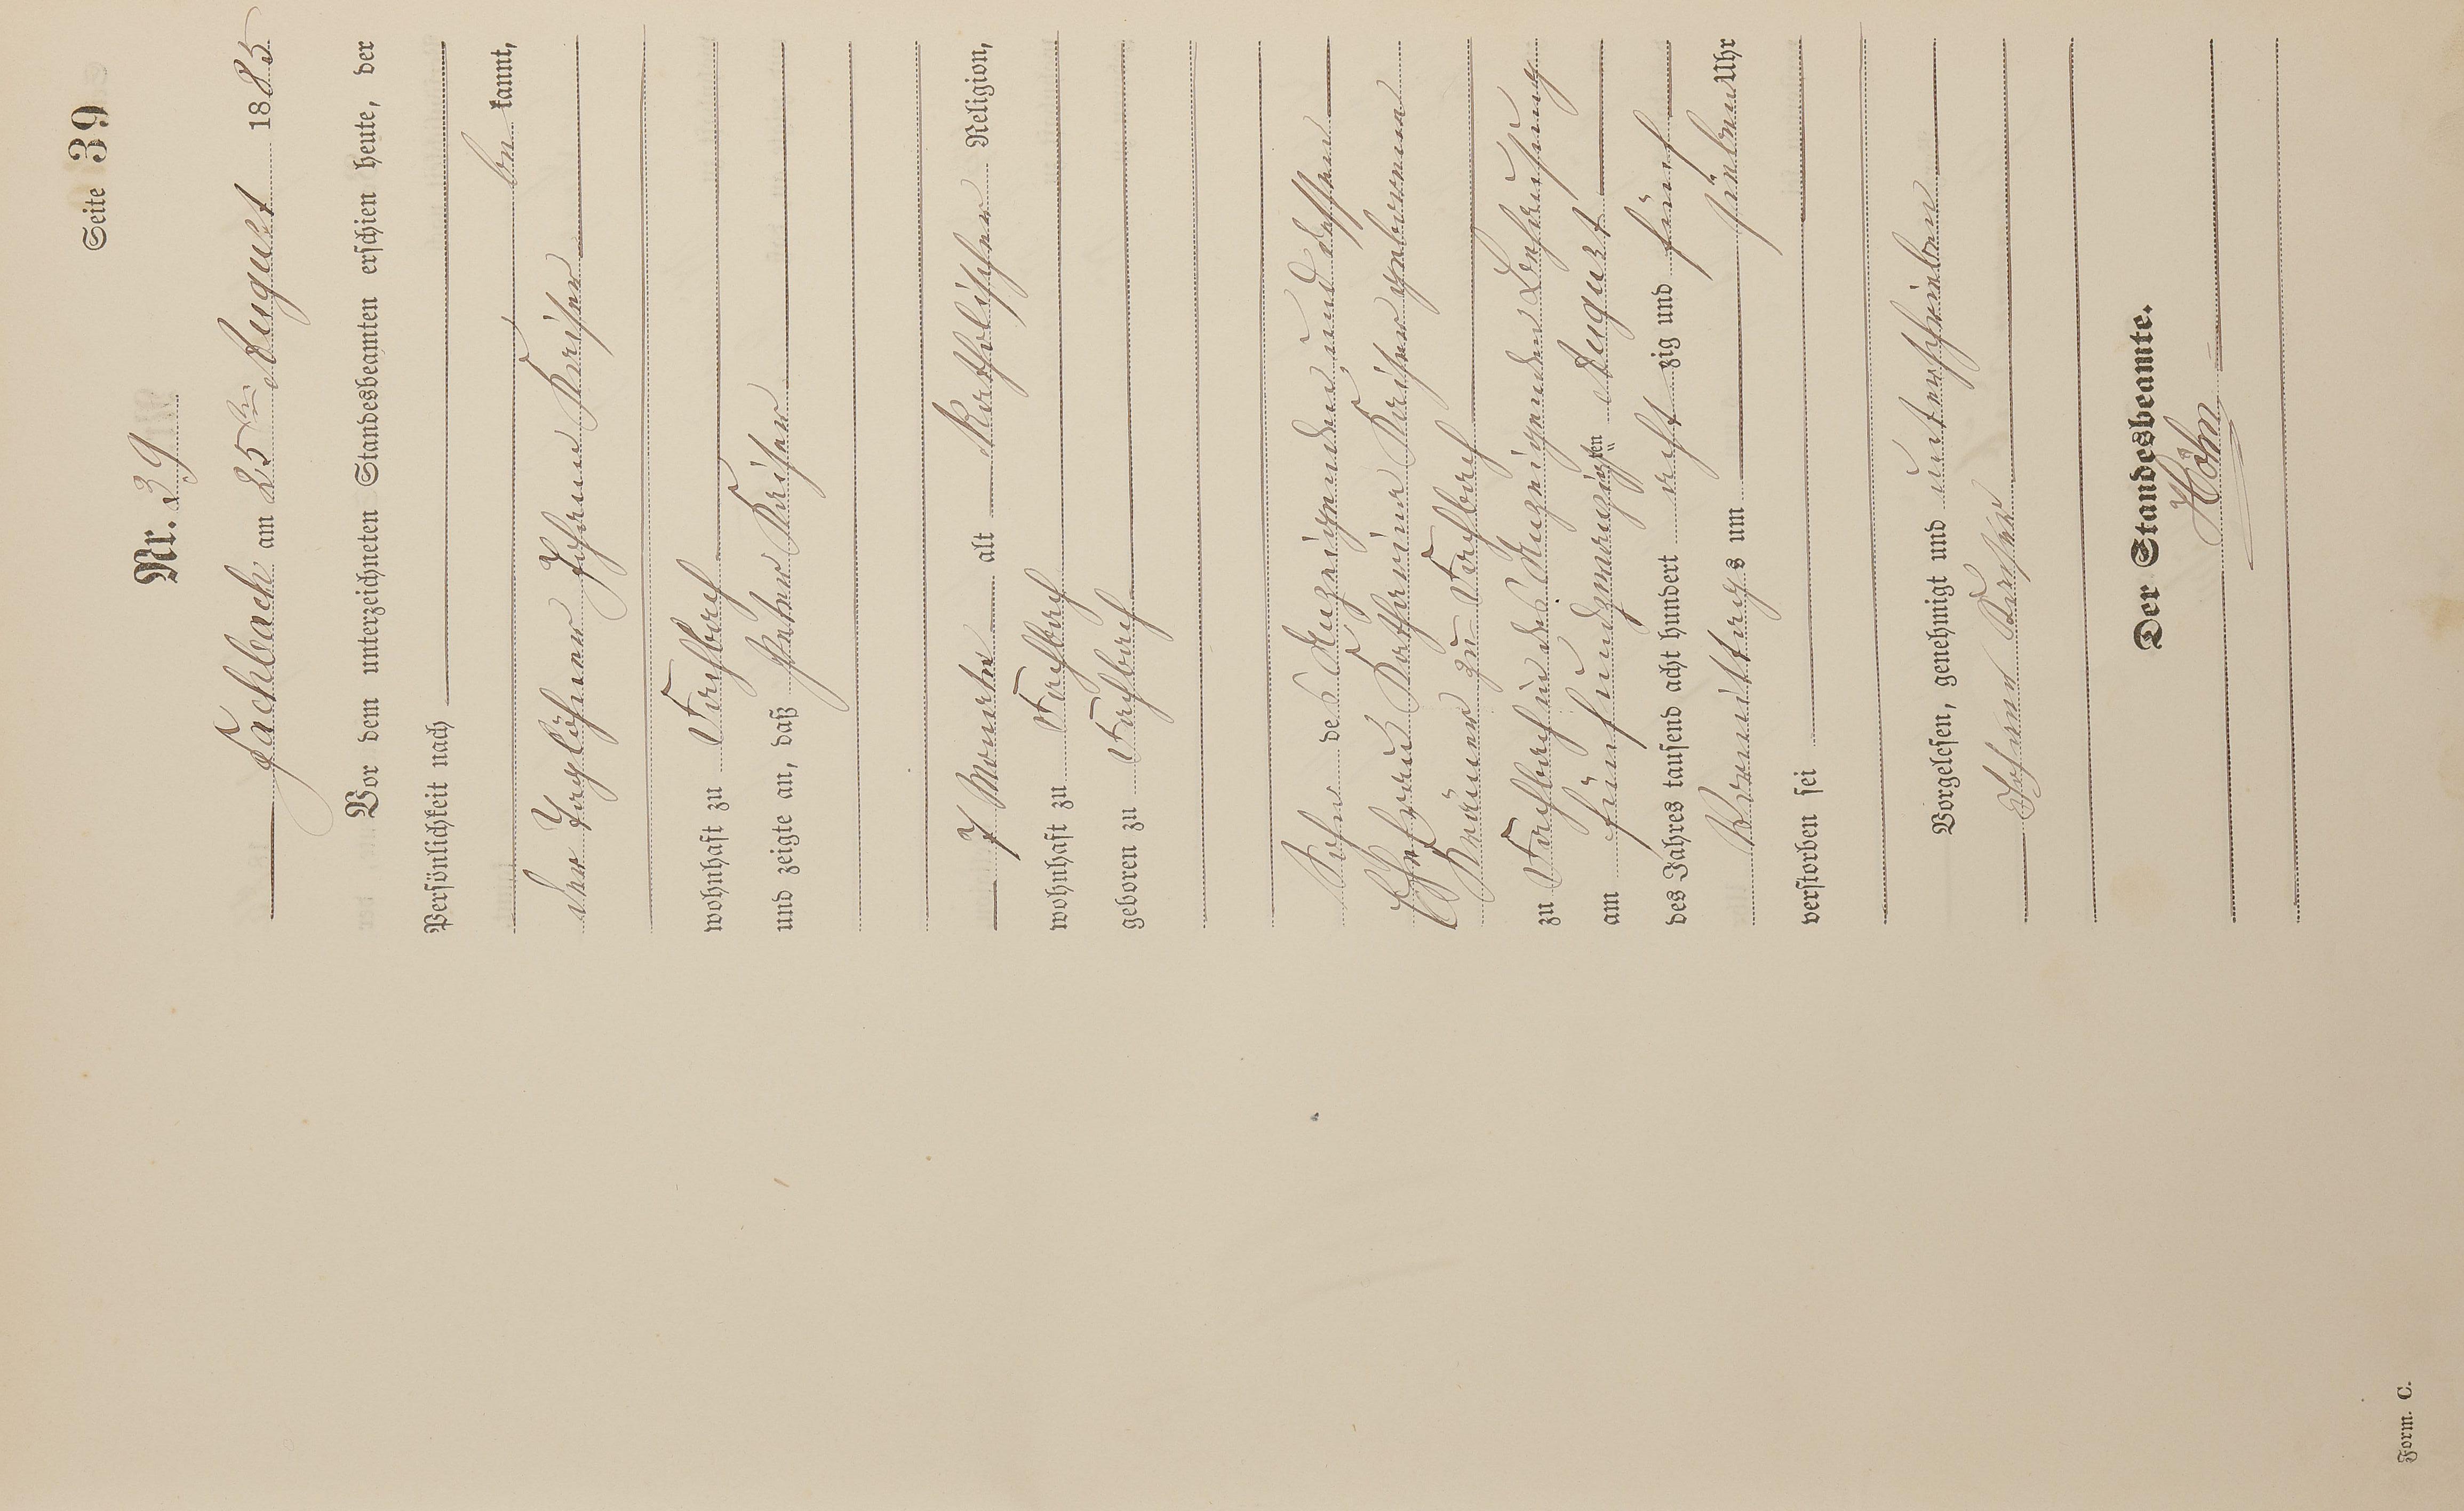 Seite 39
Nr. 39
Fachbach am 25ten August 1885
Vor dem unterzeichneten Standesbeamten erschien heute, der
Persönlichkeit nach
be kannt,
der Taglöhner Johann
wohnhaft zu Fachbach
und zeigte an, daß Peter
7 Monate alt Katholischer Religion,
wohnhaft zu Fachbach
geboren zu Fachbach
Sohn des Anzeigenden und dessen
Ehefrau Katharina geborenen
zu Fachbach
zu Fachbach in des Anzeigenden Behausung
am fünfundzwanzigsten August
des Jahres tausend acht hundert acht zig und fünf
Vormittags um sieben Uhr
verstorben sei
Vorgelesen, genehmigt und unterschrieben
Johann
Der Standesbeamte.
Höhn
Form. C.